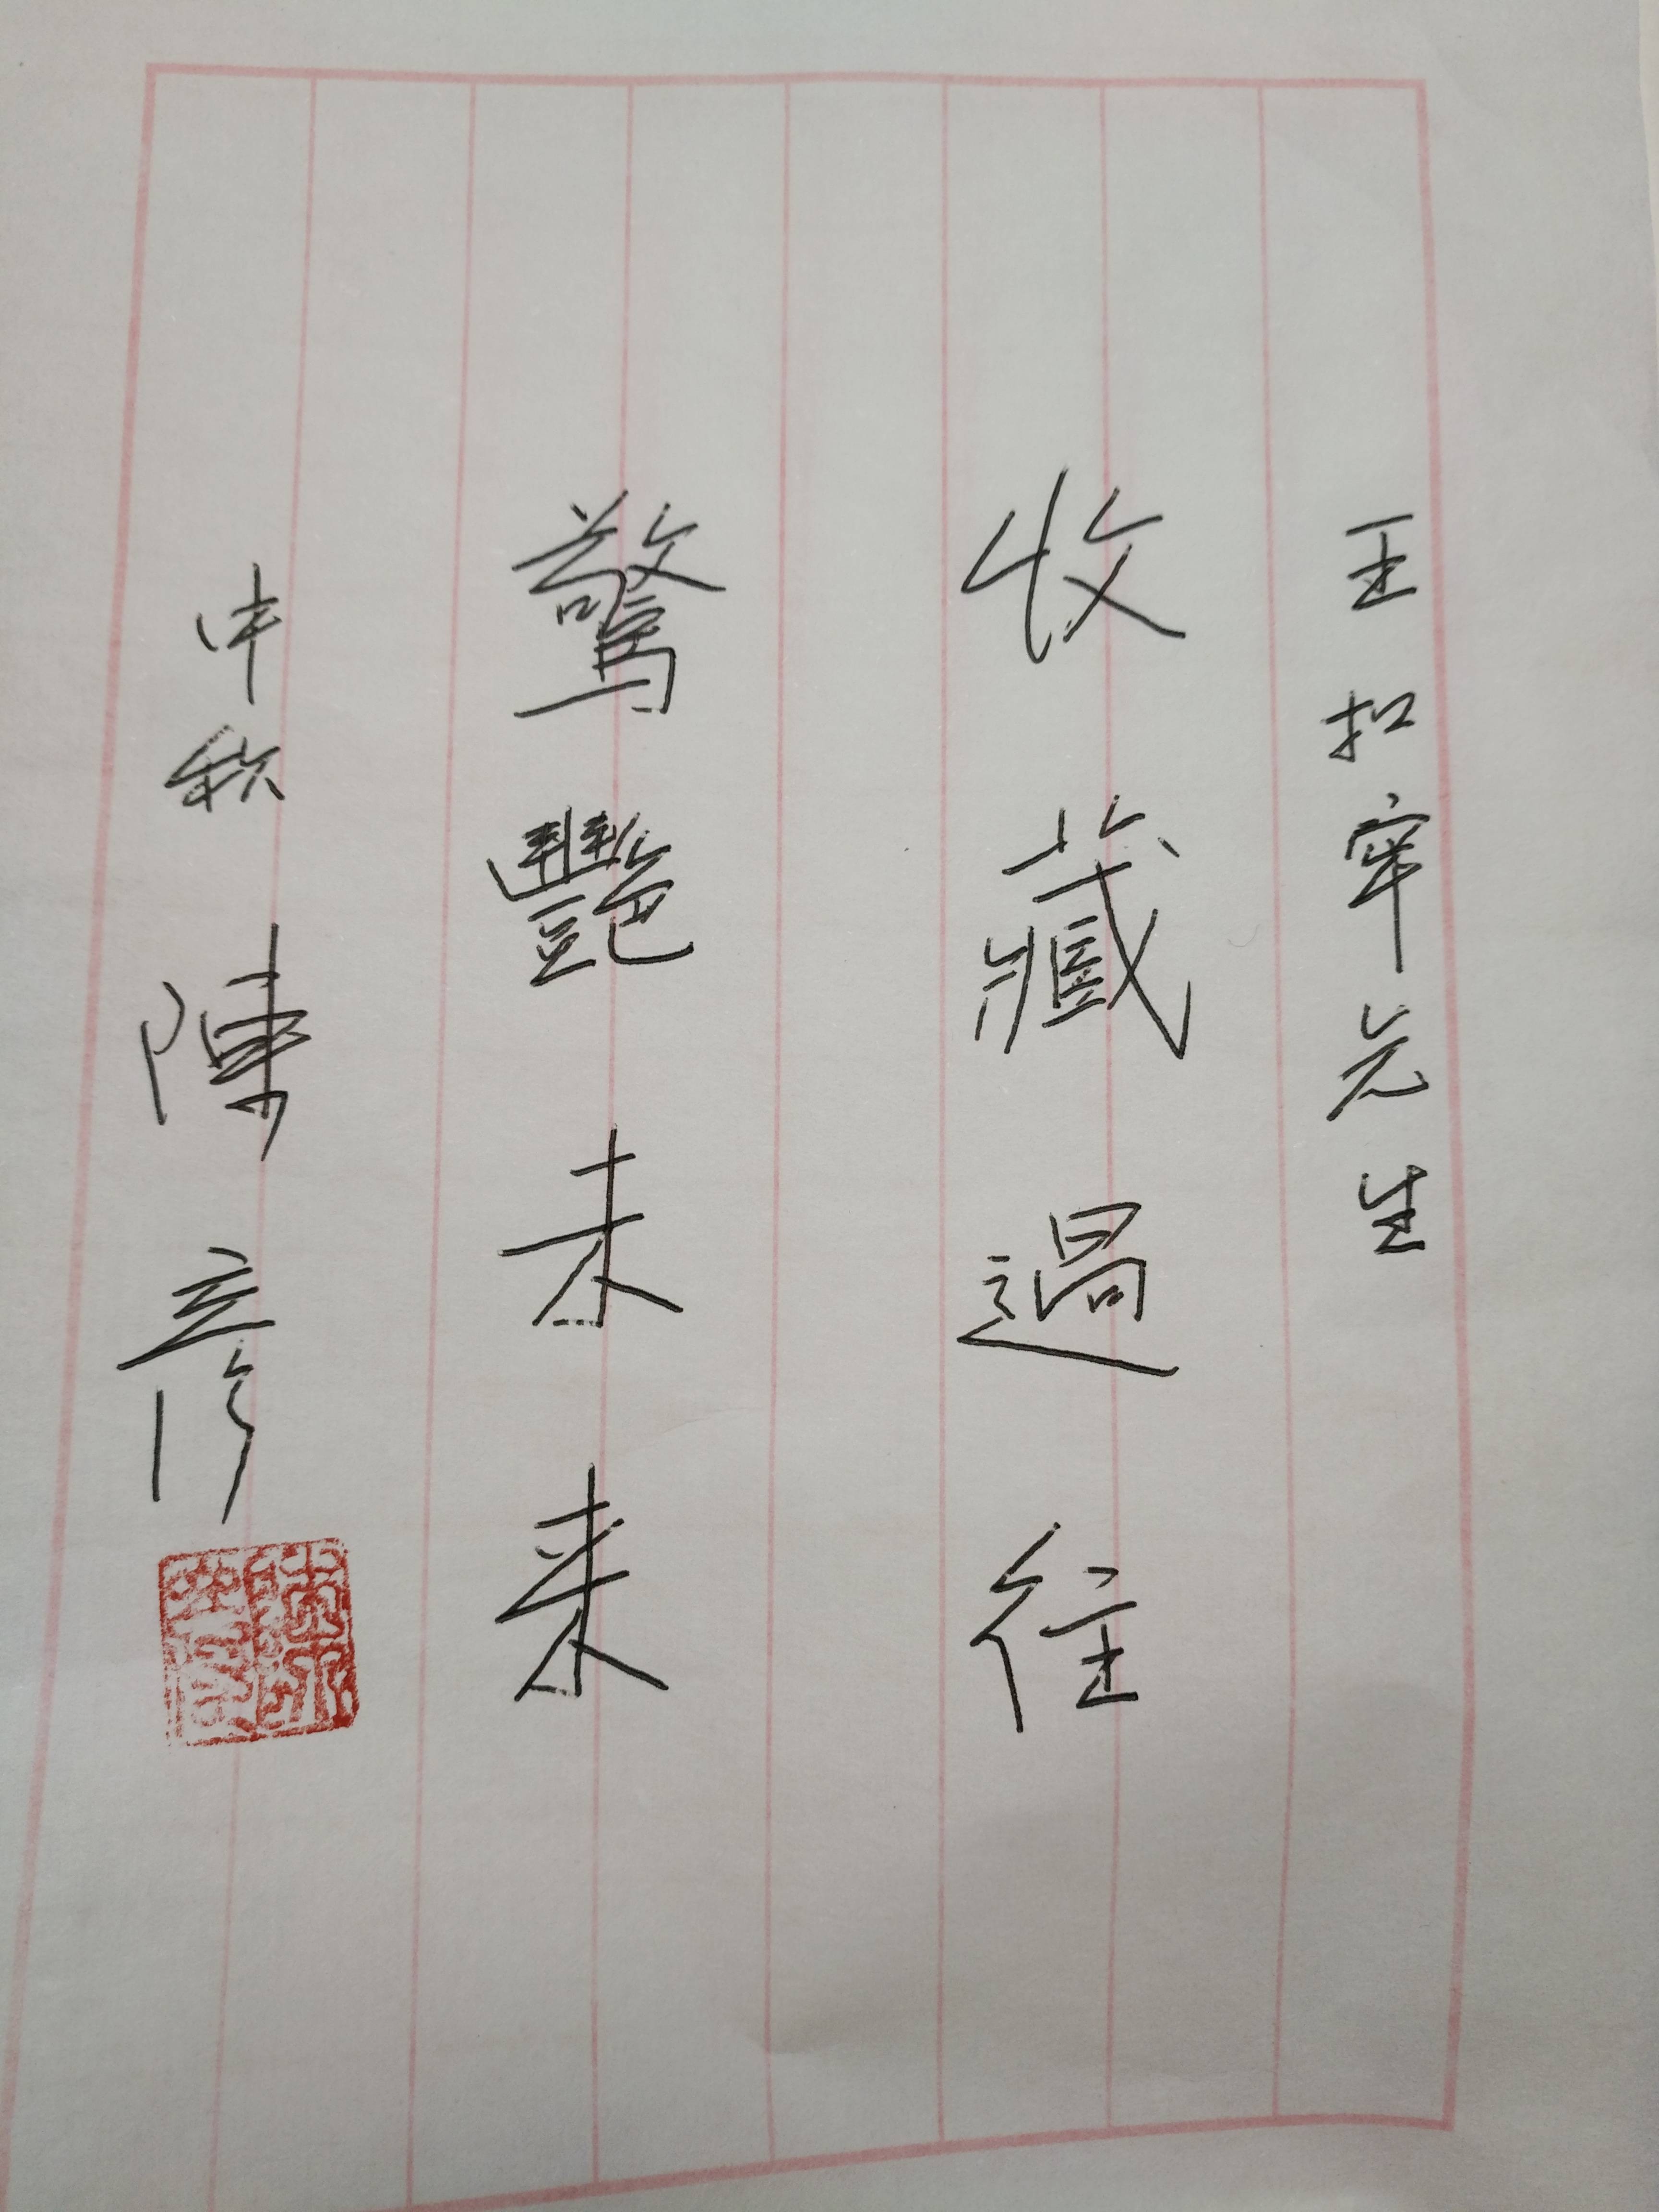 王扣牢先生
收藏過往
驚艷未来
中秋 陳彦